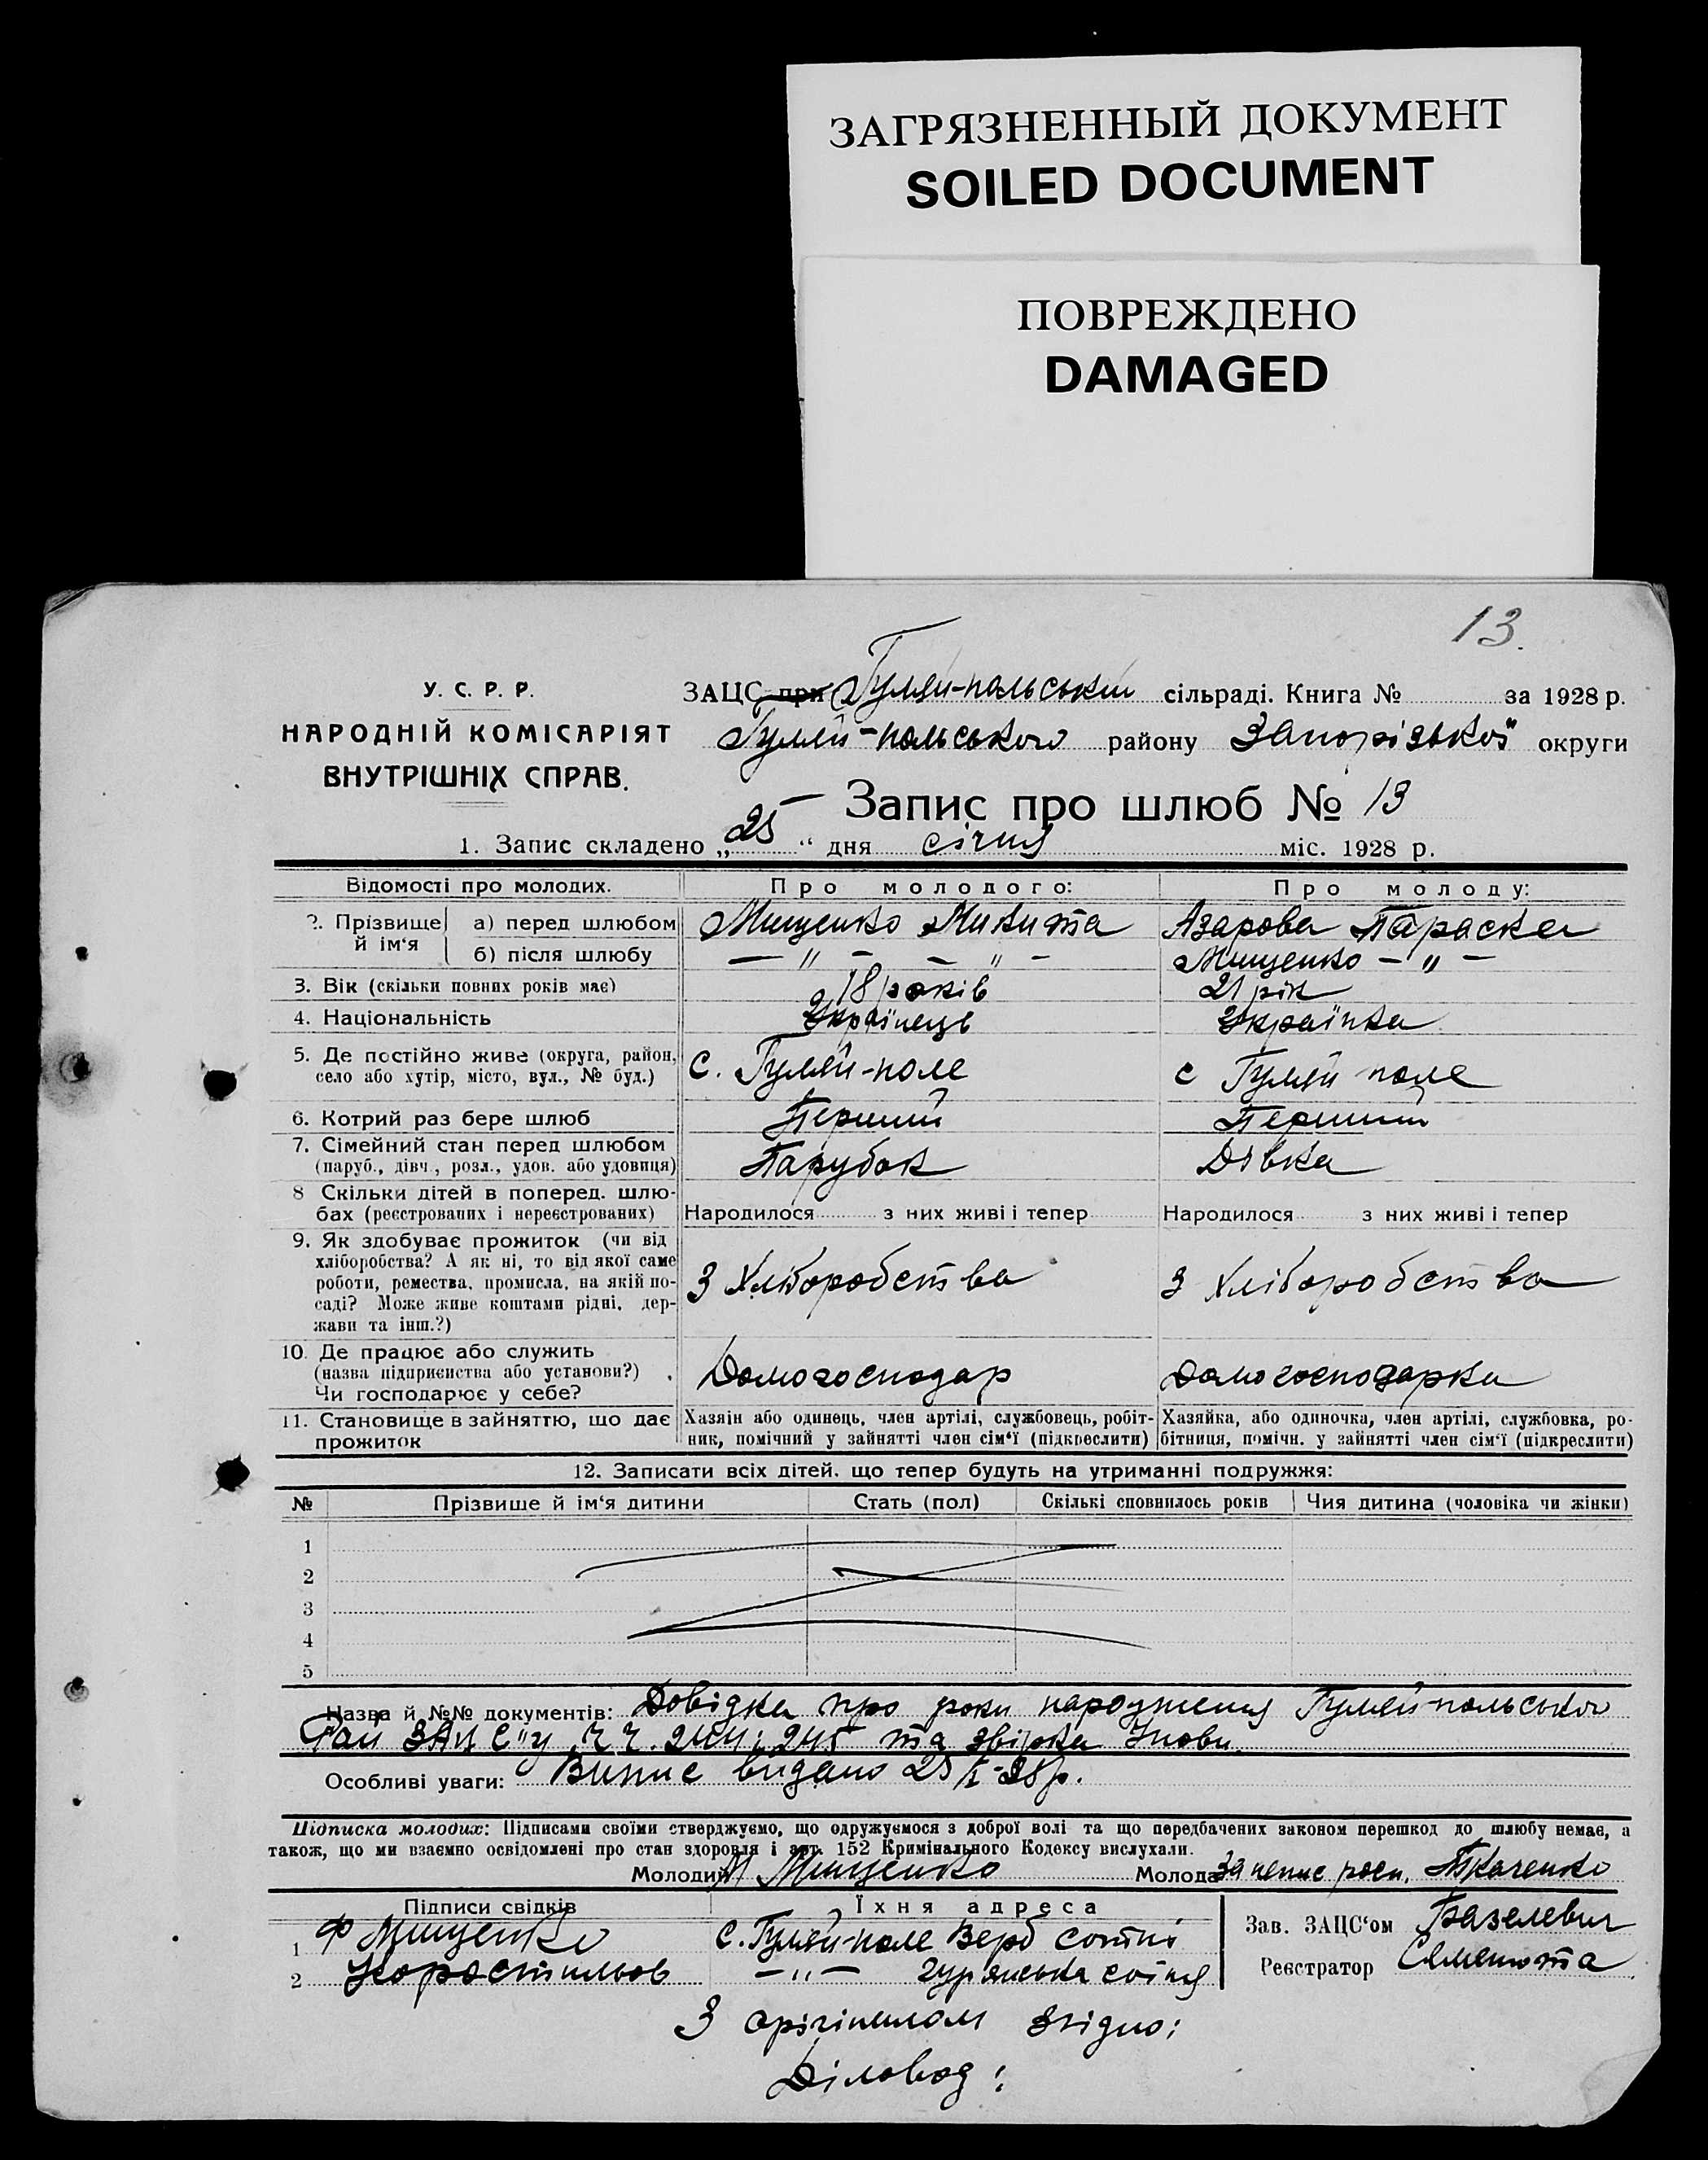 ЗАГРЯЗНЕННЫЙ ДОКУМЕНТ
SOILED DOCUMENT
ПОВРЕЖДЕНО
DAMAGED
13.
У. С. Р. Р.
НАРОДНІЙ КОМІСАРІЯТ
ВНУТРІШНІХ СПРАВ.
ЗАЦС при Гуляй-польській сільраді. Книга № за 1928 р.
Гуляй-польського району Запорізької округи
Запис про шлюб № 13
1. Запис складено „25“ дня січня міс. 1928 р.
Відомості про молодих. Про молодого: Про молоду:
2. Прізвище й ім‘я а) перед шлюбом Мищенко Микита Азарова Параска
б) після шлюбу — „ — — „ — Мищенко — „ —
3. Вік (скільки повних років має) 18 років 21 рік
4. Національність Українець Українка
5. Де постійно живе (округа, район, с. Гуляй-поле с Гуляй поле
село або хутір, місто, вул., № буд.)
6. Котрий раз бере шлюб Перший Перший
7. Сімейний стан перед шлюбом Парубок Дівка
(паруб., дівч., розл., удов. або удовиця)
8 Скільки дітей в поперед. шлю-
бах (реєстрованих і нереєстрованих) Народилося з них живі і тепер Народилося з них живі і тепер
9. Як здобуває прожиток (чи від
хліборобства? А як ні, то від якої саме
роботи, ремества, промисла, на якій по- З Хліборобства З Хліборобства
саді? Може живе коштами рідні, дер-
жави та інш.?)
10. Де працює або служить
(назва підприєнства або установи?) Домогосподар Домогосподарка
Чи господарює у себе?
11. Становище в зайняттю, що дає Хазяін або одинець, член артілі, службовець, робіт- Хазяйка, або одиночка, член артілі, службовка, ро-
прожиток ник, помічний у зайнятті член сім‘ї (підкреслити) бітниця, помічн. у зайнятті член сім‘ї (підкреслити)
12. Записати всіх дітей, що тепер будуть на утриманні подружжя:
№ Прізвище й ім‘я дитини Стать (пол) Скількі сповнилось років Чия дитина (чоловіка чи жінки)
1
2
3
4
5
Назва й №№ документів: Довідка про роки народження Гуляй-польського
Рай ЗАЦС"у ч.ч. 244 і 245 та звірка
Особливі уваги: Випис видано 25/I-28р.
Підписка молодих: Підписами своїми стверджуємо, що одружуємося з доброї волі та що передбачених законом перешкод до шлюбу немає, а
також, що ми взаємно освідомлені про стан здоровля і арт. 152 Кримінального Кодексу вислухали.
Молодий М Мищенко Молода За непис росп. Ткаченко
Підписи свідків Їхня адреса
1 Ф Мищенко с. Гуляй-поле Верб сотні
2 Коростильов — „ — гурянська сотня
Зав. ЗАЦС‘ом Базелевич
Реєстратор Семенюта
З орігіналом згідно:
Діловод: